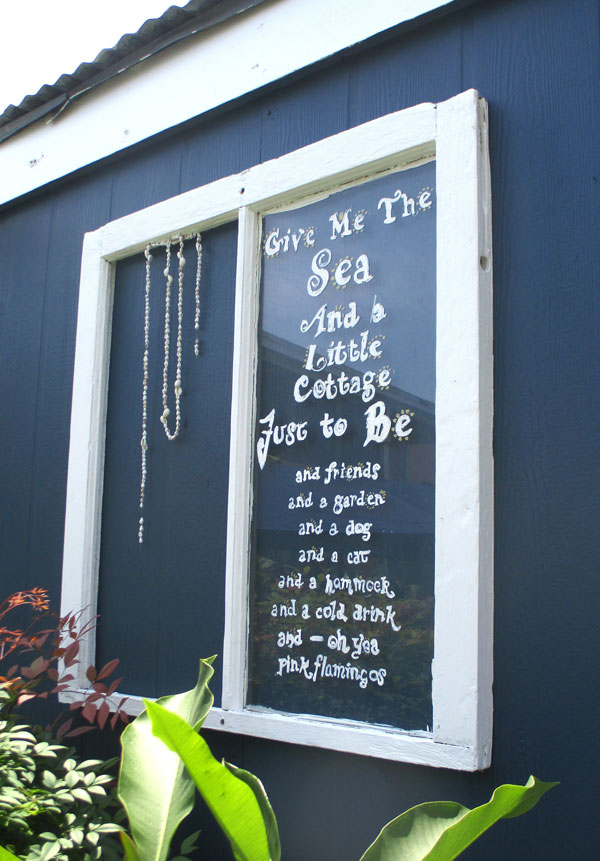 Give Me The
Sea
And a
Little
Cottage
Just to Be
and friends
and a garden
and a dog
and a cat
and a hammock
and a cold drink
and - oh yea
pink flamingos